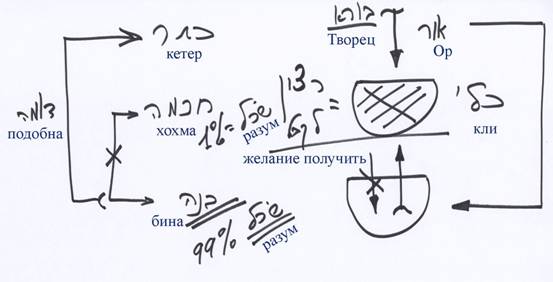 כתר
кетер
בורא
Творец
אור
Ор
דומה
подобна
חכמה
хохма
1% = שכל
разум
רצון
לקבל =
желание получить
כלי
кли
בינה
бина
99% שכל
разум